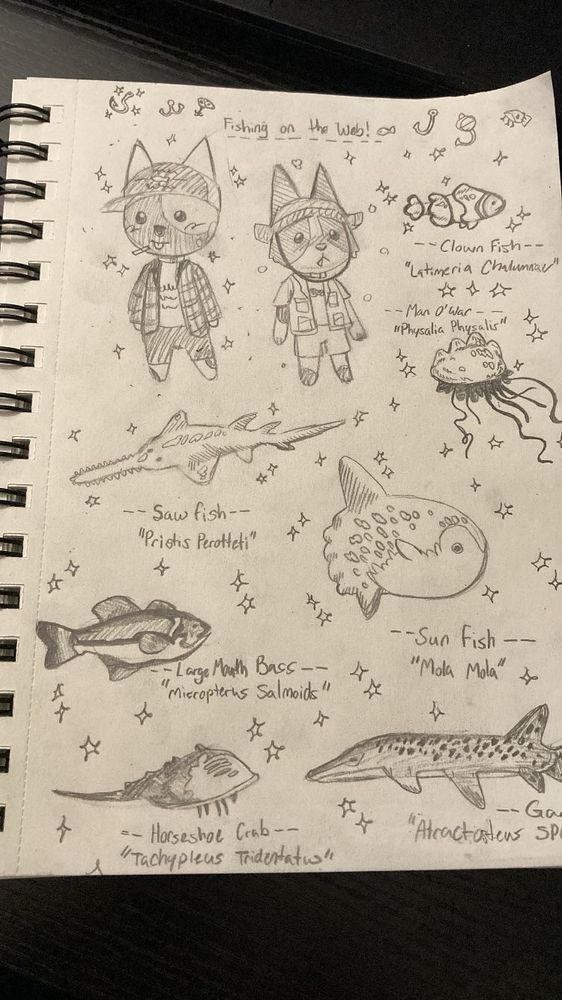 Fishing on the Web!
--Clown Fish--
"Latimeria Chalumnae"
--Man O'War--
"Physalia Physalis"
--Saw fish--
"Pristis Perotteti"
--Sun Fish--
"Mola Mola"
--Large Mouth Bass--
"Micropterus Salmoids"
--Ga
"Atractosteus SP
--Horseshoe Crab--
"Tachypleus Tridentatus"